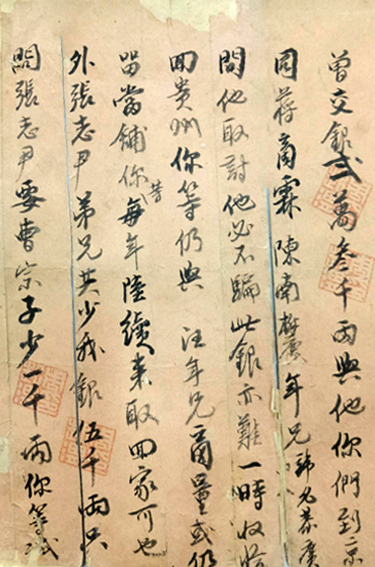 曾交銀弍萬叄千兩與他你們到京
同蔣商霖陳南麓年兄諱兄恭
問他取討他必不騙此銀亦難一時收
回貴州你等仍與汪年兄商量或仍
留當舖你等每年陸續來取回家可也
外張志尹弟兄共少我銀伍千兩只
問張志尹要曹宗子少一千兩你等